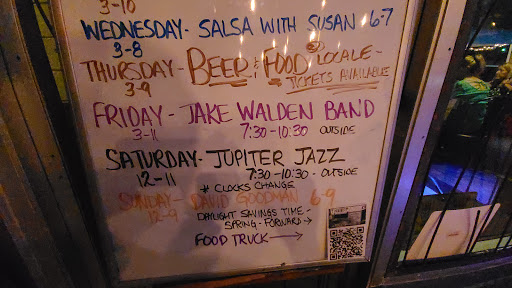 3-10
WEDNESDAY- SALSA WITH SUSAN 6-7
3-8
THURSDAY- BEER & FOOD @ LOCALE-
3-9 TICKETS AVAILABLE
FRIDAY- JAKE WALDEN BAND
3-11 7:30-10:30 OUTSIDE
SATURDAY- JUPITER JAZZ
12-11 7:30-10:30- OUTSIDE
# CLOCKS CHANGE
SUNDAY- DAVID GOODMAN 6-9
12-9 DAYLIGHT SAVINGS TIME-
SPRING-FORWARD→
FOOD TRUCK→